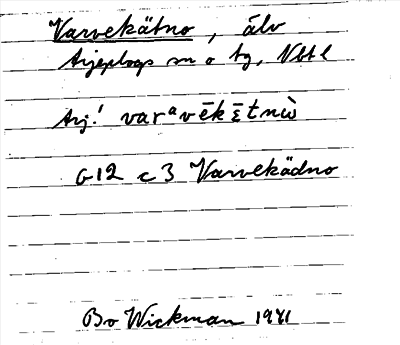 Varvekätno, älv
Arjeplogs sn o tg, Nbt l
Arj! varᵃvēkē̮tnὼ
G12 c3 Varvekädno
Bo Wickman 1941